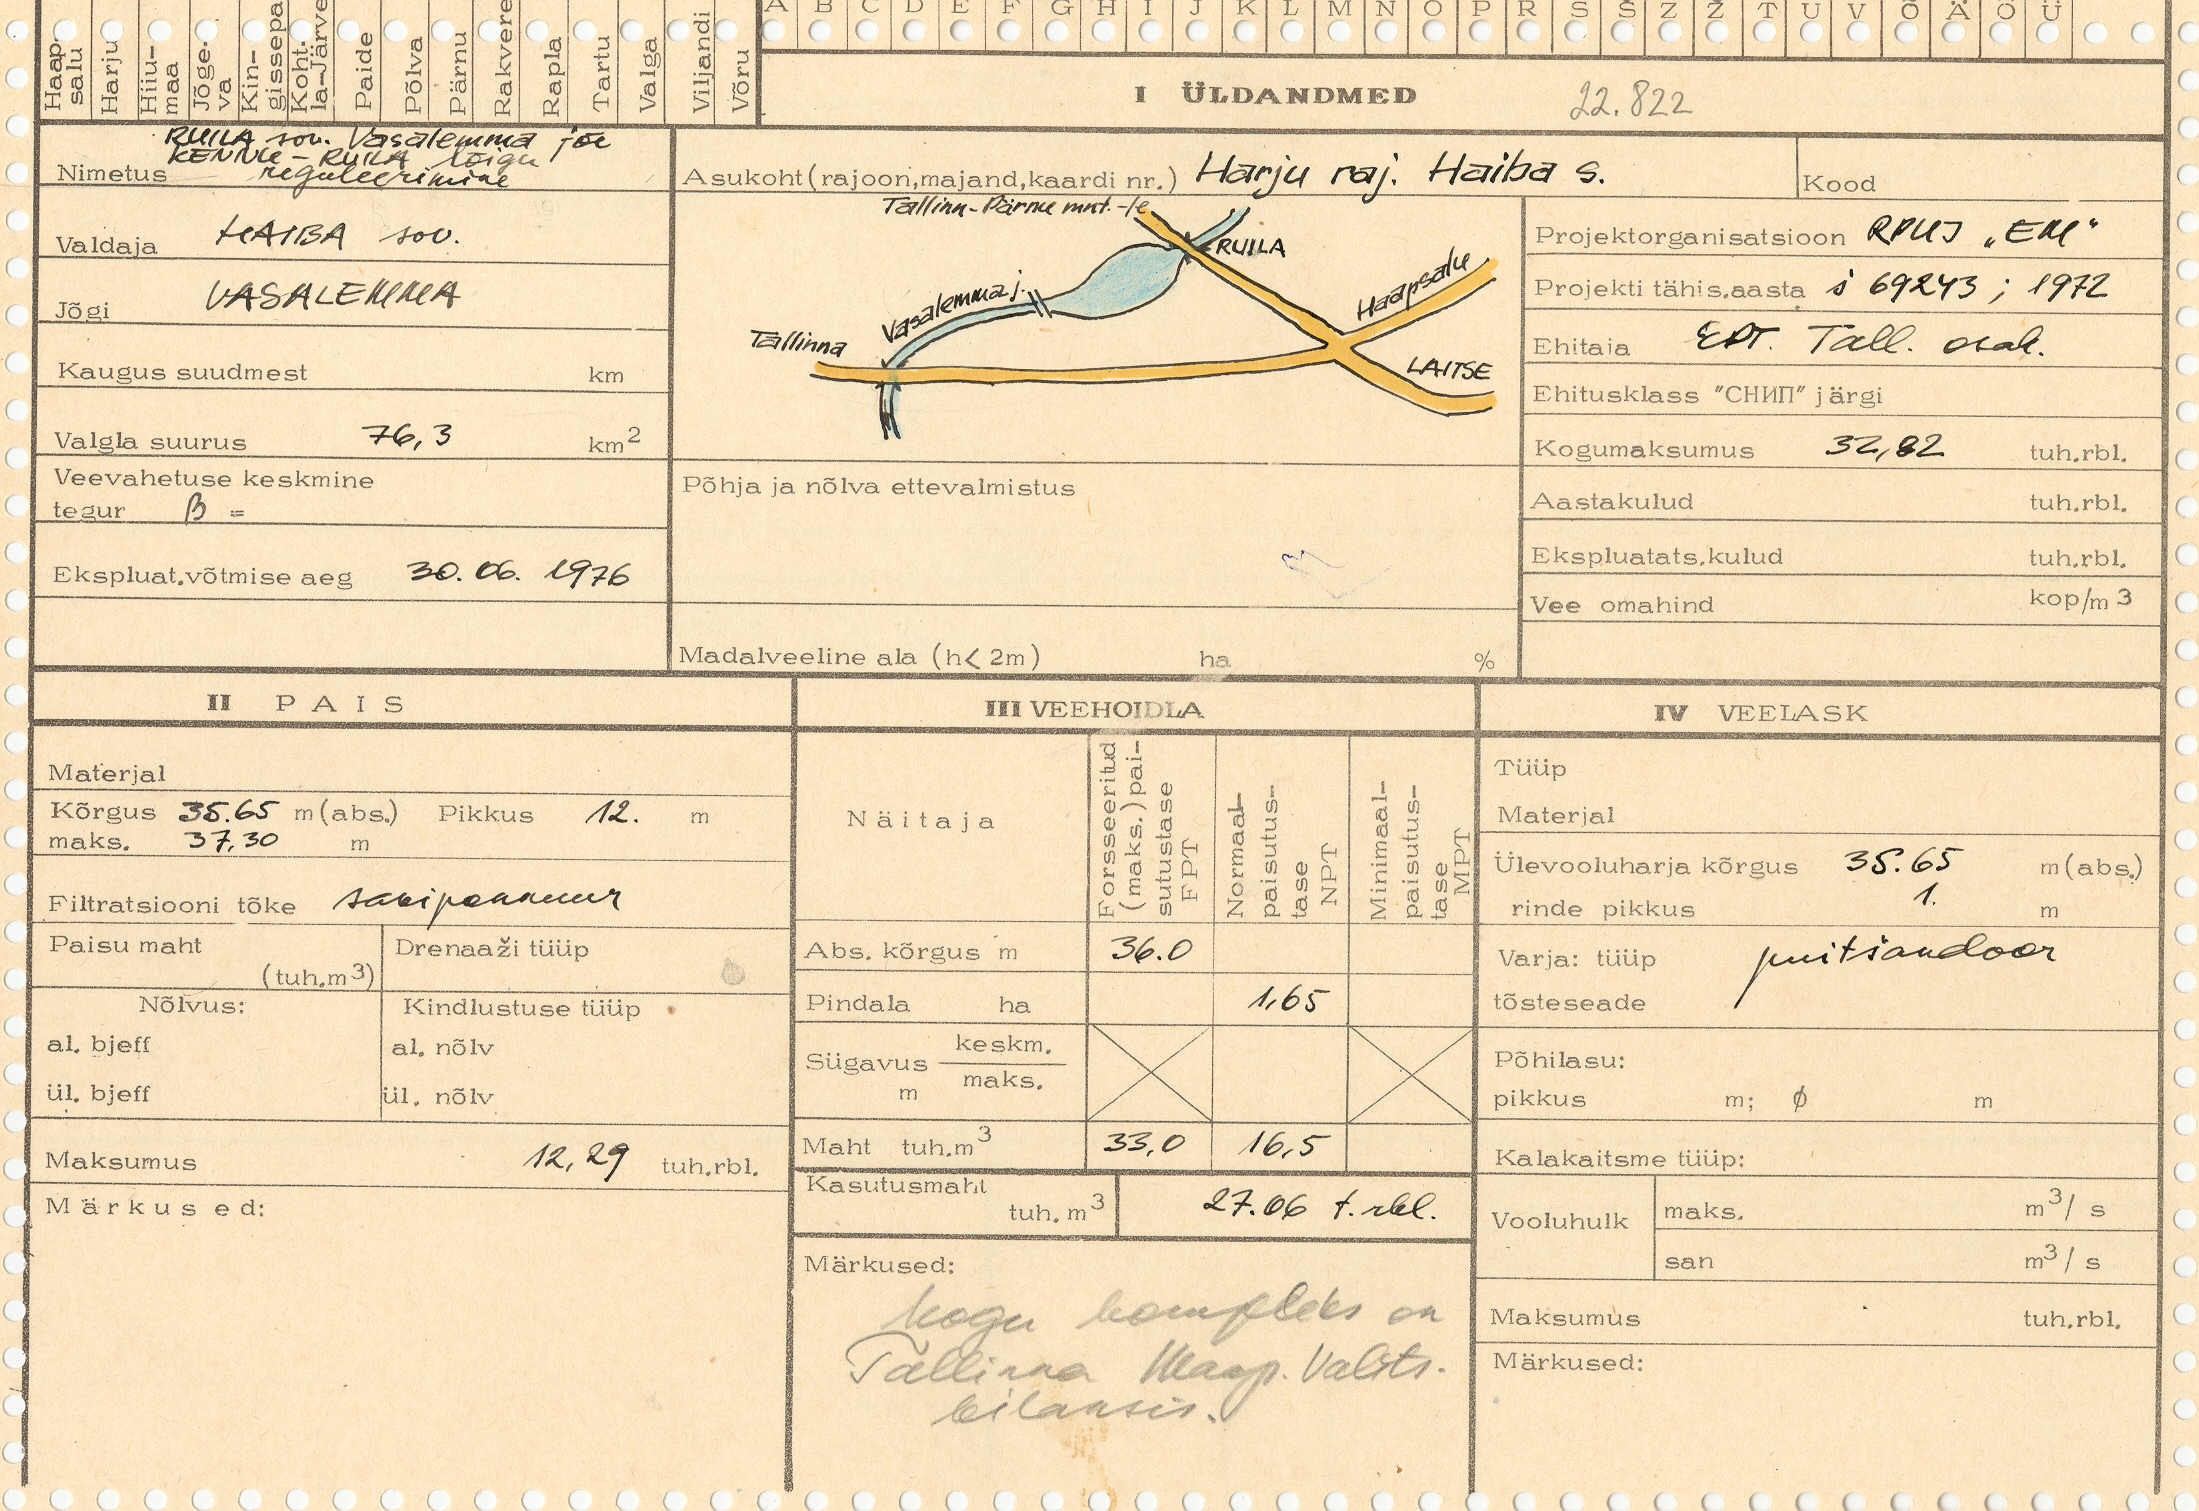 A B C D E F G H I J K L M N O P R S Š Z Ž T U V Õ Ä Ö Ü
Haap-
salu
Harju
Hiiu-
maa
Jõge-
va
Kin-
gissepa
Koht-
la-Järve
Paide
Põlva
Pärnu
Rakvere
Rapla
Tartu
Valga
Viljandi
Võru
I ÜLDANDMED 22.822
RUILA sov. Vasalemma jõe
KENNU - RUILA lõigu
Nimetus reguleerimine
Asukoht (rajoon,majand,kaardi nr.) Harju raj. Haiba s.
Kood
Valdaja HAIBA sov.
Jõgi VASALEMMA
Kaugus suudmest km
Valgla suurus 76,3 km2
Veevahetuse keskmine
tegur β =
Ekspluat.võtmise aeg 30.06. 1976
Tallinn-Pärnu mnt.-le
RUILA
Vasalemma j.
Haapsalu
Tallinna
LAITSE
Põhja ja nõlva ettevalmistus
Madalveeline ala (h< 2m) ha %
Projektorganisatsioon RPUI „EM"
Projekti tähis.aasta š 69243 ; 1972
Ehitaja EPT. Tall. osak.
Ehitusklass "СНИП" järgi
Kogumaksumus 32,82 tuh.rbl.
Aastakulud tuh.rbl.
Ekspluatats.kulud tuh.rbl.
Vee omahind kop/m3
II PAIS
Materjal
Kõrgus 35.65 m(abs.) Pikkus 12. m
maks. 37,30 m
Filtratsiooni tõke saviponnuur
Paisu maht
(tuh.m3)
Drenaaži tüüp
Nõlvus:
Kindlustuse tüüp
al. bjeff al. nõlv
ül. bjeff ül. nõlv
Maksumus 12,29 tuh.rbl.
Märkused:
III VEEHOIDLA
Näitaja
Forsseeritud
(maks.) pai-
sutustase
FPT
Normaal-
paisutus-
tase
NPT
Minimaal-
paisutus-
tase
MPT
Abs. kõrgus m 36.0
Pindala ha 1,65
Sügavus keskm.
m maks.
Maht tuh.m3 33,0 16,5
Kasutusmaht
tuh.m3 27.06 t.rbl.
Märkused:
Kogu kompleks on
Tallinna Maap. Valits.
bilansis.
IV VEELASK
Tüüp
Materjal
Ülevooluharja kõrgus 35.65 m(abs.)
rinde pikkus 1. m
Varja: tüüp puitšandoor
tõsteseade
Põhilasu:
pikkus m; ϕ m
Kalakaitsme tüüp:
Vooluhulk maks. m3/s
san m3/s
Maksumus tuh.rbl.
Märkused: